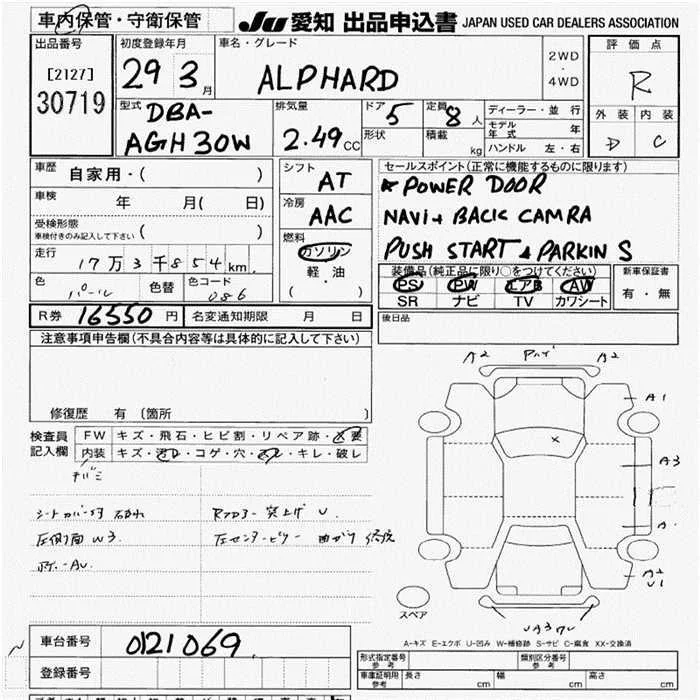 車内保管・守衛保管
JU 愛知 出品申込書 JAPAN USED CAR DEALERS ASSOCIATION
出品番号
[2127]
30719
初度登録年月
29 3月
車名・グレード
ALPHARD
2WD
・
4WD
評価点
R
外装 内装
D C
型式
DBA-
AGH30W
排気量
2.49CC
ドア 5
定員 8人
形状
積載 kg
ディーラー・並行
モデル年式 年
ハンドル 左・右
車歴 自家用・( )
車検 年 月( 日)
受検形態
車検付きのみ記入して下さい ( )
走行 17万3千854km
色 パール
色替
色コード 086
シフト AT
冷房 AAC
燃料
ガソリン
・
軽油
・
( )
セールスポイント(正常に機能するものに限ります)
POWER DOOR
NAVI+ BACK CAMRA
PUSH START & PARKIN S
装備品(純正品に限り○をつけてください)
PS PW エアB AW
SR ナビ TV カワシート
新車保証書
有・無
R券 16550円
名変通知期限 月 日
後日品
注意事項申告欄(不具合内容等は具体的に記入して下さい)
修復歴 有 〔箇所 〕
検査員記入欄
FW キズ・飛石・ヒビ割・リペア跡・X要
内装 キズ・汚レ・コゲ・穴・スレ・キレ・破レ
シートカバー
W3
A2 A2
A1
A3
A2
U1
スペア
A-キズ E-エクボ U-凹み W-補修跡 S-サビ C-腐食 XX-交換済
車台番号 0121069
登録番号
形式指定番号 参考
類別区分番号 参考
車庫証明用 参考 長さ cm 幅 cm 高さ cm